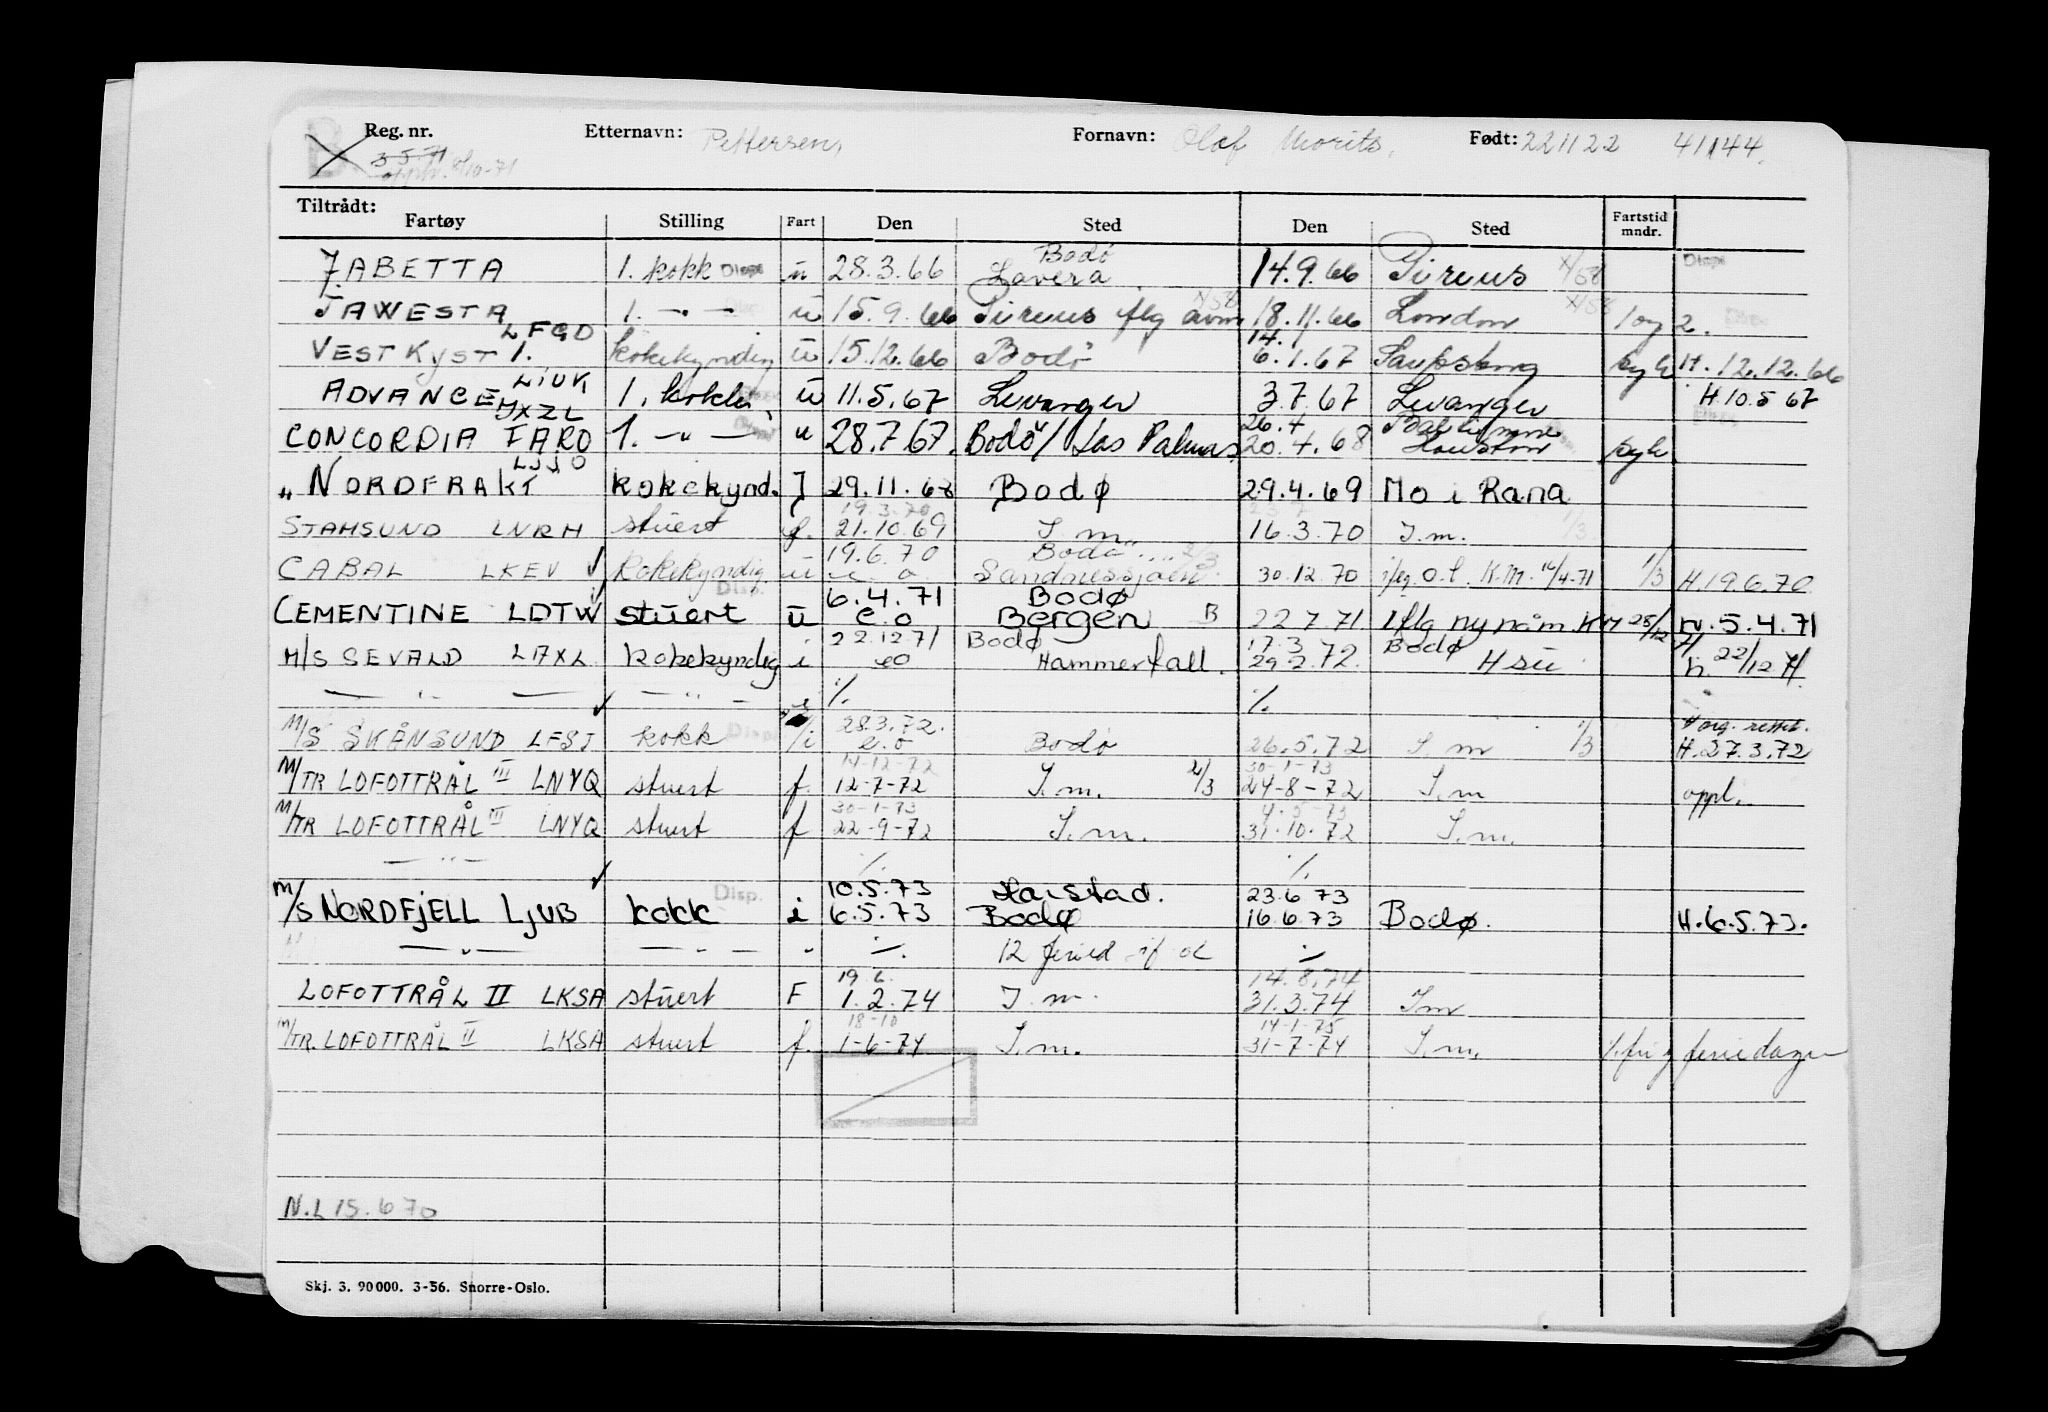 Reg. nr. Etternavn: Pettersen, Fornavn: Olaf Morits, Født: 221122 41144.
3.5.71
8/10-71
Tiltrådt:
Fartøy Stilling Fart Den Sted Den Sted Fartstid mndr.
JABETTA 1. kokk Disp. u 28.3.66 Bodø Lavera 14.9.66 Pireus X/58 Disp
JAWESTA 1. -"- u 15.9.66 Pireus flg avm X/58 18.11.66 London X/58 1 og 2.
VESTKYST 1. LFGD kokekyndig u 15.12.66 Bodø 14. 6.1.67 Sarpsborg syk H. 12.12.66
ADVANCE LIUK 1. kokk u 11.5.67 Levanger 3.7.67 Levanger H.10.5 67
CONCORDIA FARO 1. -"- u 28.7.67. Bodø/Las Palmas 26.4 20.4.68 Baltimore Houston syk
" NORDFRAKT LJJO kokekynd. J 29.11.68 Bodø 29.4.69 Mo i Rana
19.3.70 23.7
STAMSUND LNRH stuert f. 21.10.69 I.m. 16.3.70 I.m. 1/3
19.6.70 Bodø 2/3
CABAL LKEV kokekyndig u e.o Sandnessjøen 30.12.70 iflg. o.l. K.M. 16/4-71 1/3 H.19.6.70
Disp. 6.4.71 Bodø
CEMENTINE LDTW stuert u e.o Bergen B 22 7 71 iflg ny nåm KM 28/12.71 H.5.4.71
22.12 71 Bodø 17.3 Bodø
M/S SEVALD LAXL kokekyndig i eo Hammerfall. 29.2.72. Hsu h. 22/12 71
— " — — " — ./. ./.
28.3.72. H org. rettet.
M/S SKÅNSUND LFSJ kokk Disp. i e.o Bodø 26.5.72 I.m 1/3 H.27.3.72
14-12-72 30-1-73
M/TR LOFOTTRÅL III LNYQ stuert f. 12-7-72 I.m. 2/3 24-8-72 I.m oppl.
30-1-73 4-5-73
M/TR LOFOTTRÅL III LNYQ stuert f 22-9-72 I.m. 31.10.72 I.m.
— " — ./. ./.
Disp. 10.5.73 Harstad. 23.6 73
M/S NORDFJELL LJUB kokk i 6.5.73 Bodø 16.6.73 Bodø. H.6.5.73.
— " — — " — " ./. 12 feried if ol ./.
19 6. 14.8.74
LOFOTTRÅL II LKSA stuert F 1.2.74 I.m. 31.3.74 Im
18-10 14-1-75
M/TR. LOFOTTRÅL II LKSA stuert f. 1-6-74 I.m. 31-7-74 I.m. ./. fri og feriedager
N.L 15.6 70
Skj. 3. 90000. 3-56. Snorre-Oslo.